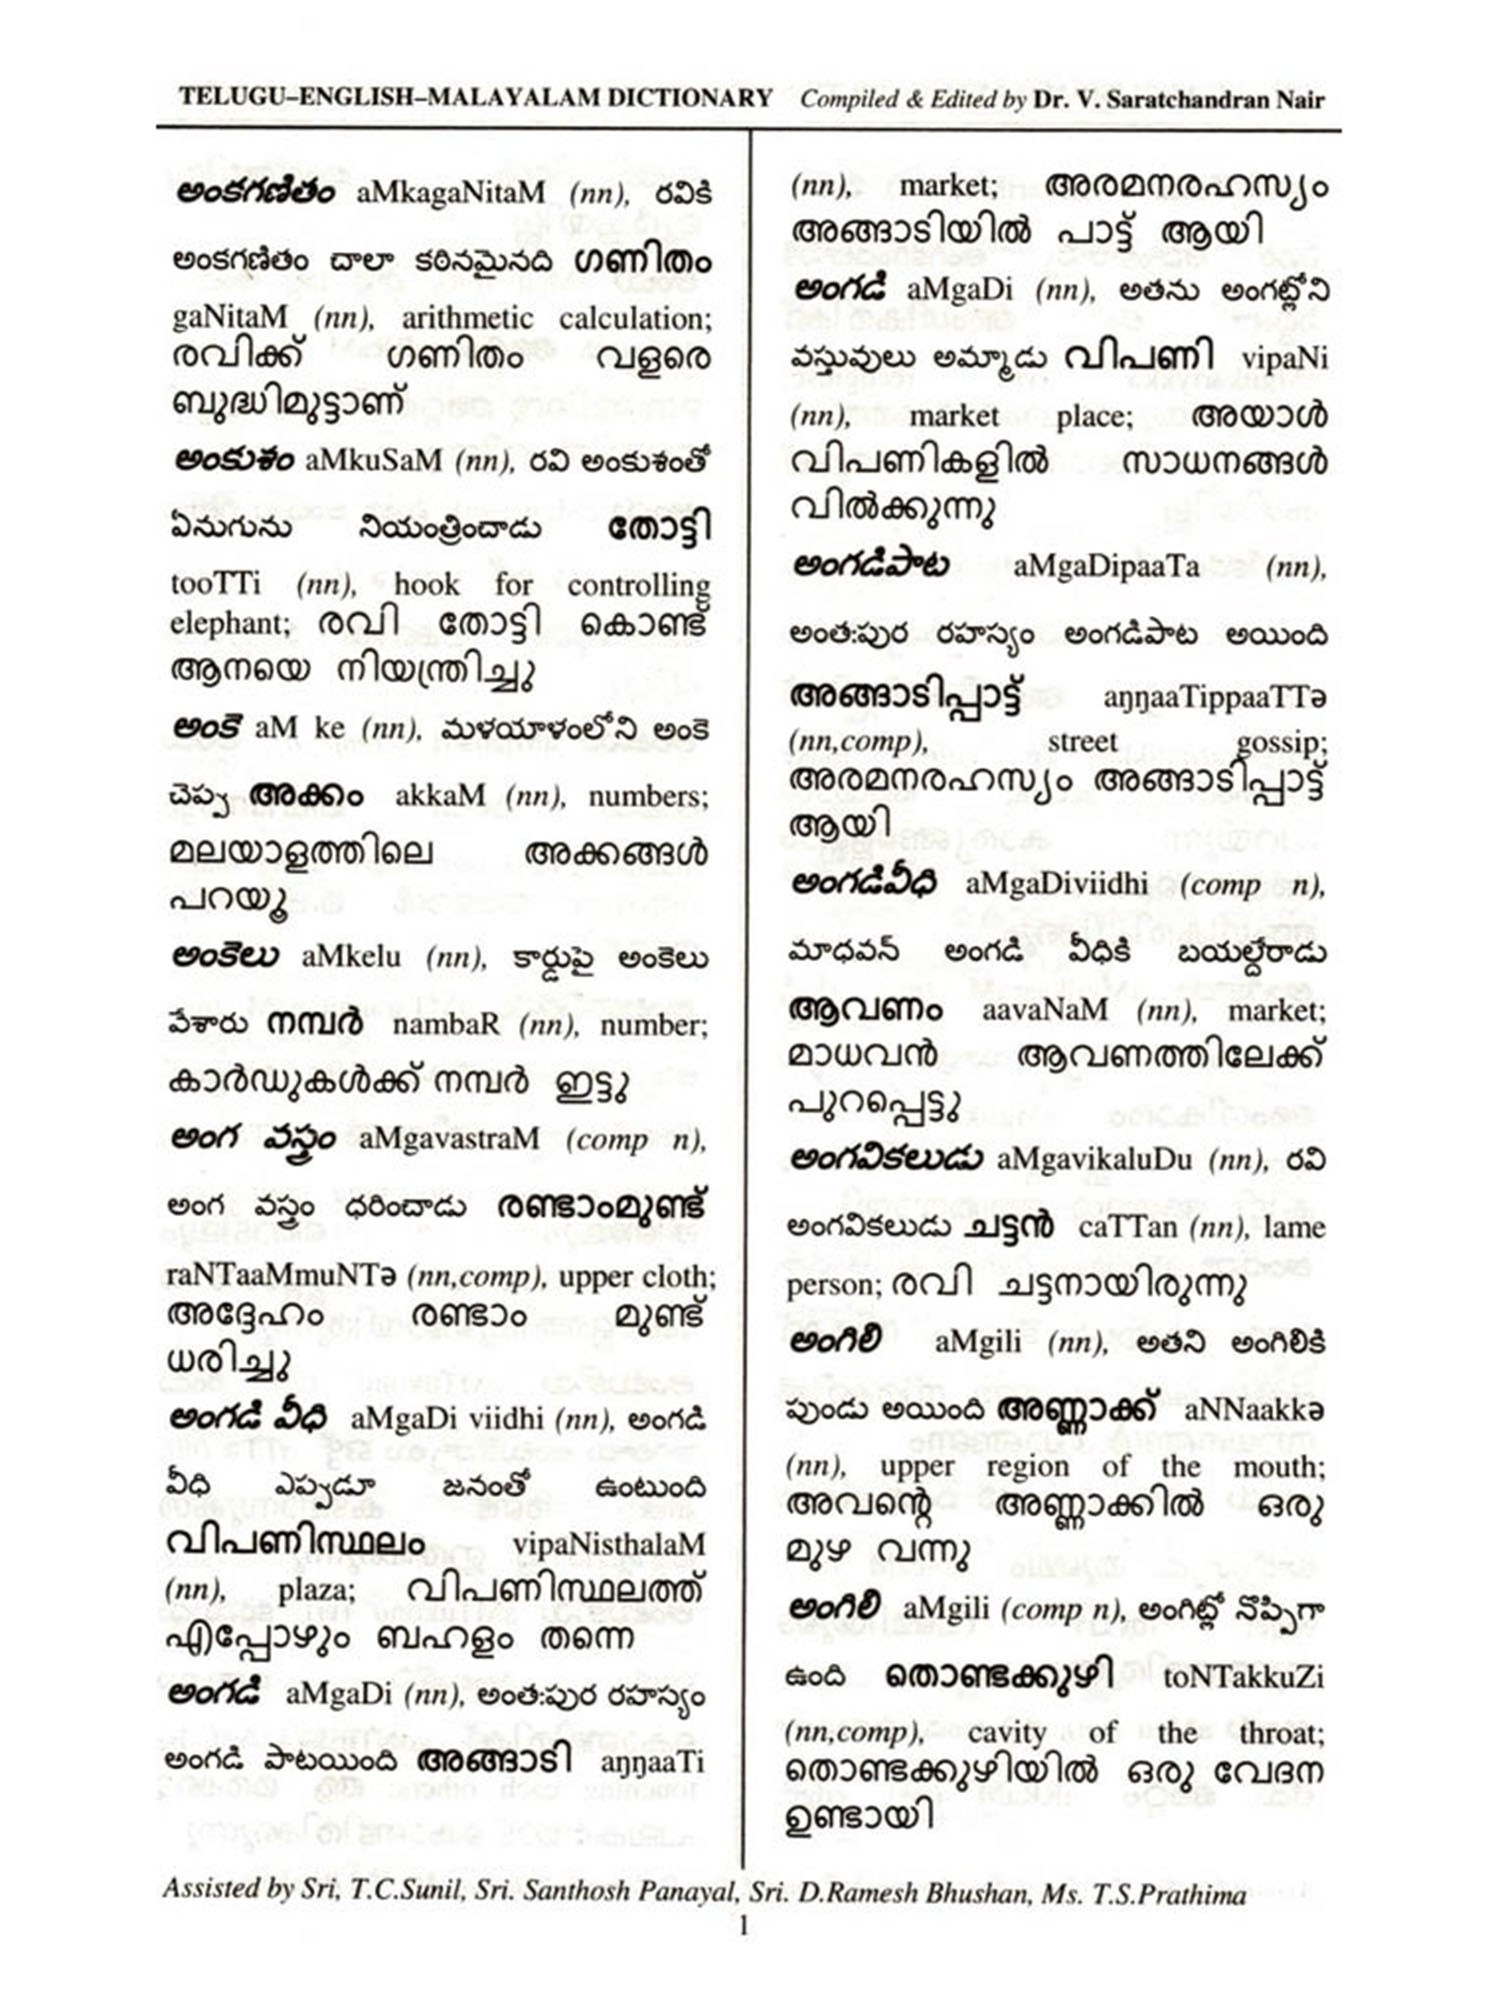 TELUGU–ENGLISH–MALAYALAM DICTIONARY Compiled & Edited by Dr. V. Saratchandran Nair
అంకగణితం aMkagaNitaM (nn), రవికి
అంకగణితం చాలా కఠినమైనది ഗണിതം
gaNitaM (nn), arithmetic calculation;
രവിക്ക് ഗണിതം വളരെ
ബുദ്ധിമുട്ടാണ്
అంకుశం aMkuSaM (nn), రవి అంకుశంతో
ఏనుగును నియంత్రించాడు തോട്ടി
tooTTi (nn), hook for controlling
elephant; രവി തോട്ടി കൊണ്ട്
ആനയെ നിയന്ത്രിച്ചു
అంకె aM ke (nn), మళయాళంలోని అంకె
చెప్పు അക്കം akkaM (nn), numbers;
മലയാളത്തിലെ അക്കങ്ങൾ
പറയൂ
అంకెలు aMkelu (nn), కార్డుపై అంకెలు
వేశారు നമ്പർ nambaR (nn), number;
കാർഡുകൾക്ക് നമ്പർ ഇട്ടു
అంగ వస్త్రం aMgavastraM (comp n),
అంగ వస్త్రం ధరించాడు രണ്ടാംമുണ്ട്
raNTaaMmuNTə (nn,comp), upper cloth;
അദ്ദേഹം രണ്ടാം മുണ്ട്
ധരിച്ചു
అంగడి వీధి aMgaDi viidhi (nn), అంగడి
వీధి ఎప్పుడూ జనంతో ఉంటుంది
വിപണിസ്ഥലം vipaNisthalaM
(nn), plaza; വിപണിസ്ഥലത്ത്
എപ്പോഴും ബഹളം തന്നെ
అంగడి aMgaDi (nn), అంతఃపుర రహస్యం
అంగడి పాటయింది അങ്ങാടി aŋŋaaTi
(nn), market; അരമനരഹസ്യം
അങ്ങാടിയിൽ പാട്ട് ആയി
అంగడి aMgaDi (nn), అతను అంగట్లోని
వస్తువులు అమ్మాడు വിപണി vipaNi
(nn), market place; അയാൾ
വിപണികളിൽ സാധനങ്ങൾ
വിൽക്കുന്നു
అంగడిపాట aMgaDipaaTa (nn),
అంతఃపుర రహస్యం అంగడిపాట అయింది
അങ്ങാടിപ്പാട്ട് aŋŋaaTippaaTTə
(nn,comp), street gossip;
അരമനരഹസ്യം അങ്ങാടിപ്പാട്ട്
ആയി
అంగడివీధి aMgaDiviidhi (comp n),
మాధవన్ అంగడి వీధికి బయల్దేరాడు
ആവണം aavaNaM (nn), market;
മാധവൻ ആവണത്തിലേക്ക്
പുറപ്പെട്ടു
అంగవికలుడు aMgavikaluDu (nn), రవి
అంగవికలుడు ചട്ടൻ caTTan (nn), lame
person; രവി ചട്ടനായിരുന്നു
అంగిలి aMgili (nn), అతని అంగిలికి
పుండు అయింది അണ്ണാക്ക് aNNaakkə
(nn), upper region of the mouth;
അവന്റെ അണ്ണാക്കിൽ ഒരു
മുഴ വന്നു
అంగిలి aMgili (comp n), అంగిట్లో నొప్పిగా
ఉంది തൊണ്ടക്കുഴി toNTakkuZi
(nn,comp), cavity of the throat;
തൊണ്ടക്കുഴിയിൽ ഒരു വേദന
ഉണ്ടായി
Assisted by Sri, T.C.Sunil, Sri. Santhosh Panayal, Sri. D.Ramesh Bhushan, Ms. T.S.Prathima
1